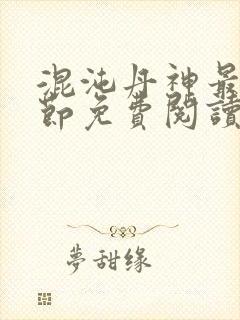 混沌丹神最
節免費閱讀
夢甜缘